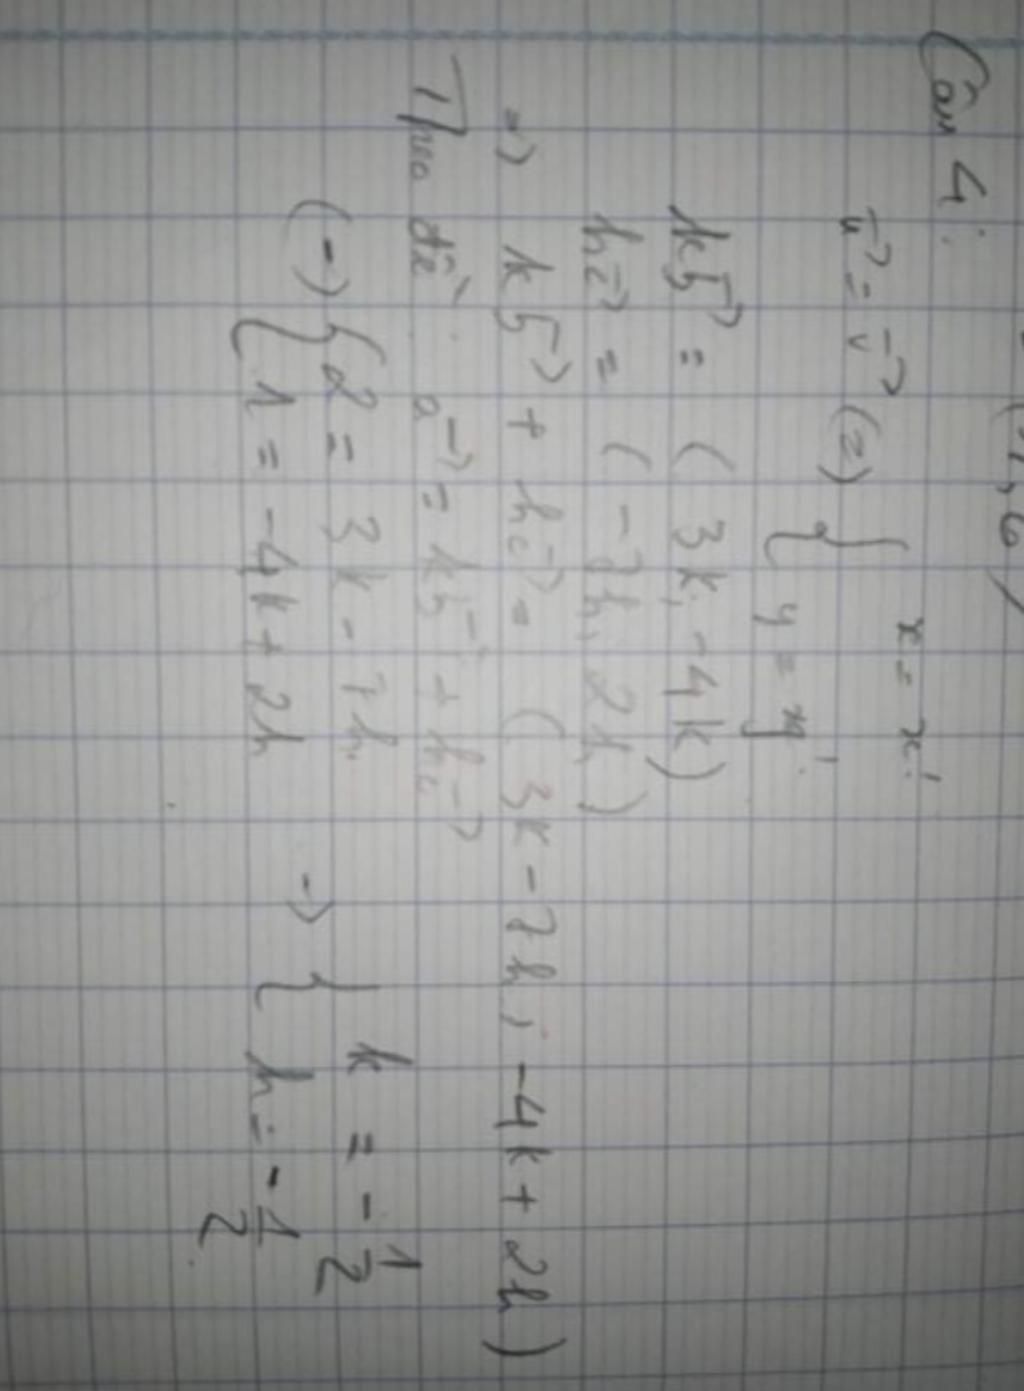 (7,6)
Câu 4:
u→ = v→ (=) { x = x'
y = y'
kb→ = ( 3k, -4k)
hc→ = ( -7h, 2h)
=> kb→ + hc→ = ( 3k - 7h; -4k + 2h)
Theo đề: a→ = kb→ + hc→
(-) { 2 = 3k - 7h → { k = -1/2
1 = -4k + 2h h = -1/2